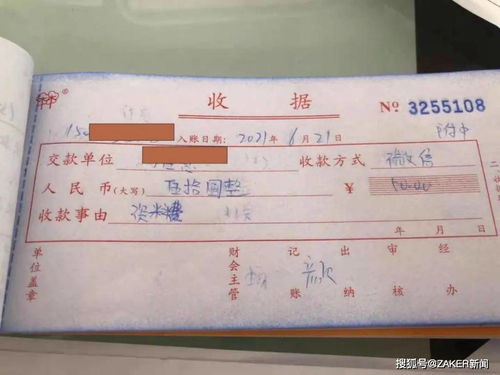 收 据 № 3255108
入账日期：2021年6月21日
附中
交款单位 收款方式 微信
人民币（大写）伍拾圆整 ￥ 50.00
收款事由 资料
年 月 日
单位盖章 财会主管 记账 出纳 审核 经办
搜狐号@ZAKER新闻